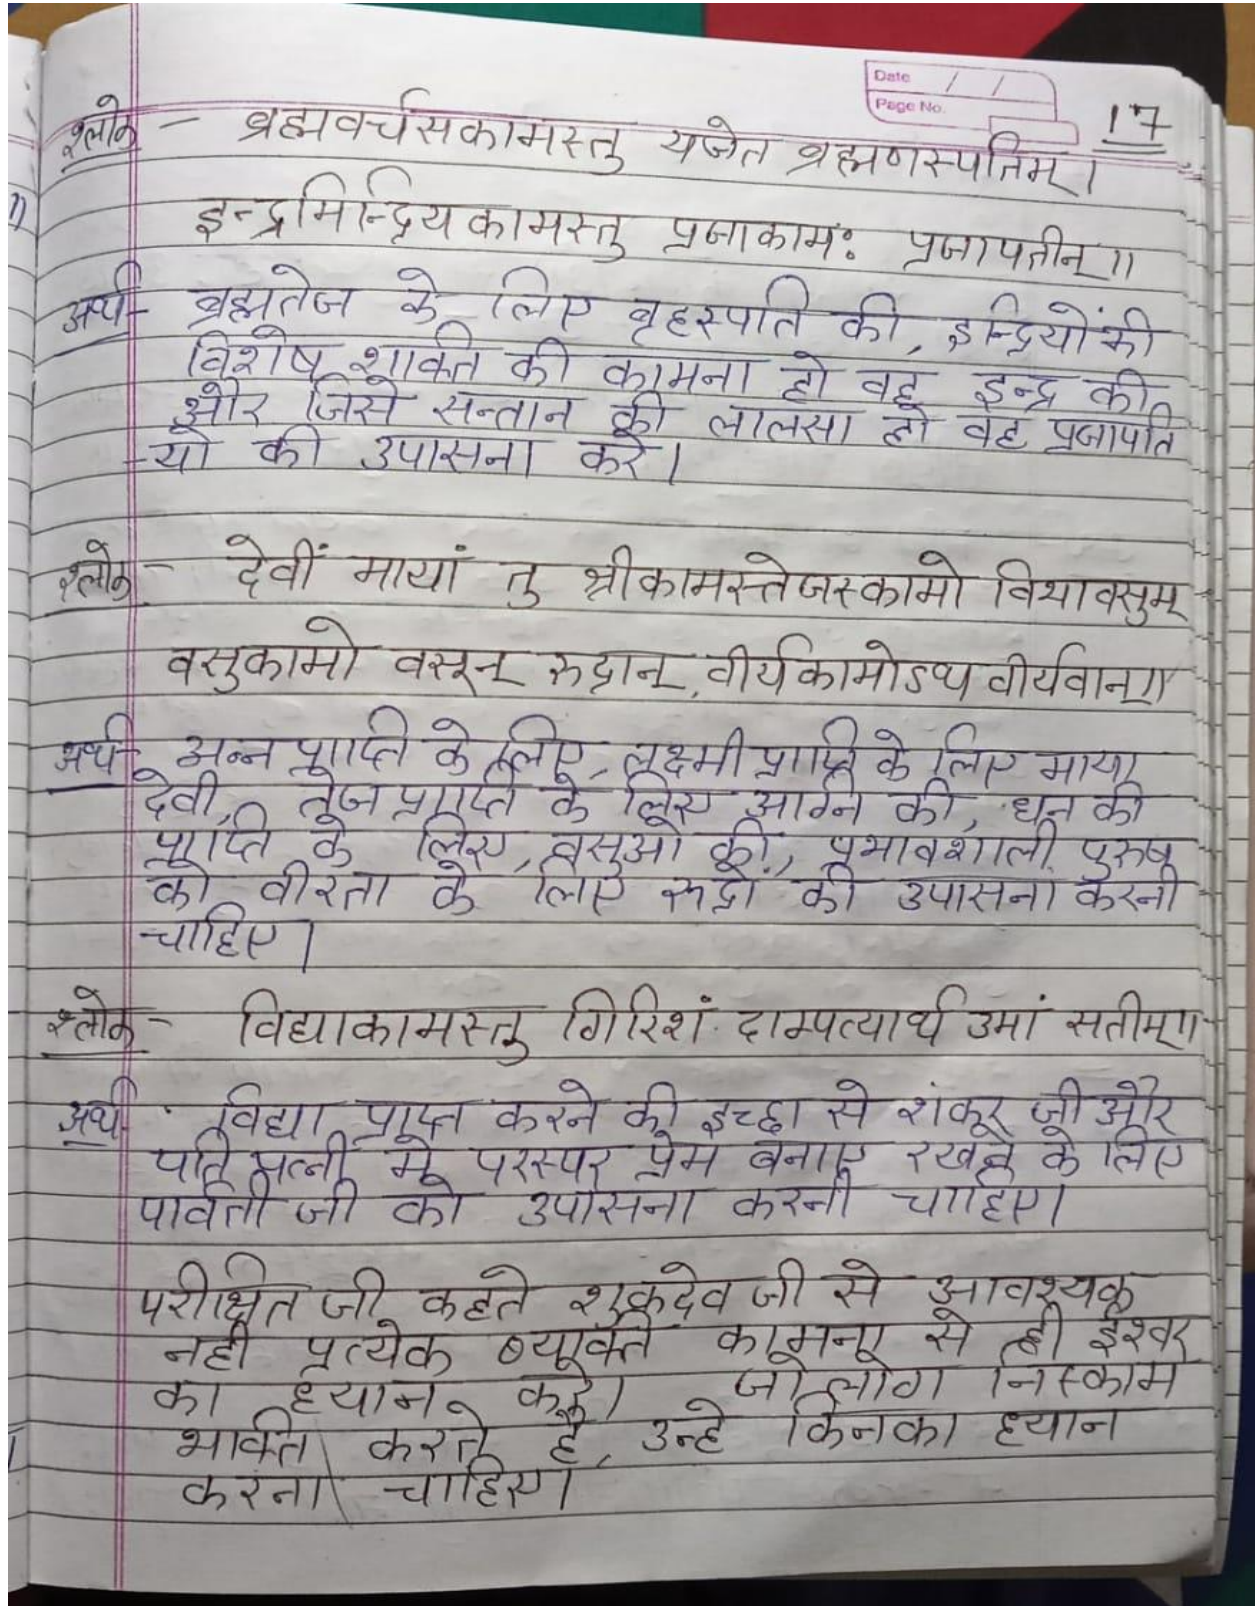 Date / /
Page No.
17
श्लोक - ब्रह्मवर्चसकामस्तु यजेत ब्रह्मणस्पतिम्।
इन्द्रमिन्द्रियकामस्तु प्रजाकामः प्रजापतीन्॥
अर्थ- ब्रह्मतेज के लिए बृहस्पति की, इन्द्रियों की
विशेष शक्ति की कामना हो वह इन्द्र की
और जिसे सन्तान की लालसा हो वह प्रजापति
-यो की उपासना करे।
श्लोक - देवीं मायां तु श्रीकामस्तेजस्कामो विभावसुम्
वसुकामो वसून् रुद्रान् वीर्यकामोऽथ वीर्यवान्॥
अर्थ- अन्न प्राप्ति के लिए, लक्ष्मी प्राप्ति के लिए माया
देवी, तेज प्राप्ति के लिए अग्नि की, धन की
प्राप्ति के लिए, वसुओ की, प्रभावशाली पुरुष
को वीरता के लिए रुद्रों की उपासना करनी
चाहिए।
श्लोक - विद्याकामस्तु गिरिशं दाम्पत्यार्थ उमां सतीम्॥
अर्थ- विद्या प्राप्त करने की इच्छा से शंकर जी और
पति पत्नी मे परस्पर प्रेम बनाए रखने के लिए
पार्वती जी की उपासना करनी चाहिए।
परीक्षित जी कहते शुकदेव जी से आवश्यक
नही प्रत्येक कामना से ही ईश्वर
का ध्यान करे। जो लोग निस्काम
भक्ति करते है, उन्हे किनका ध्यान
करना चाहिए।